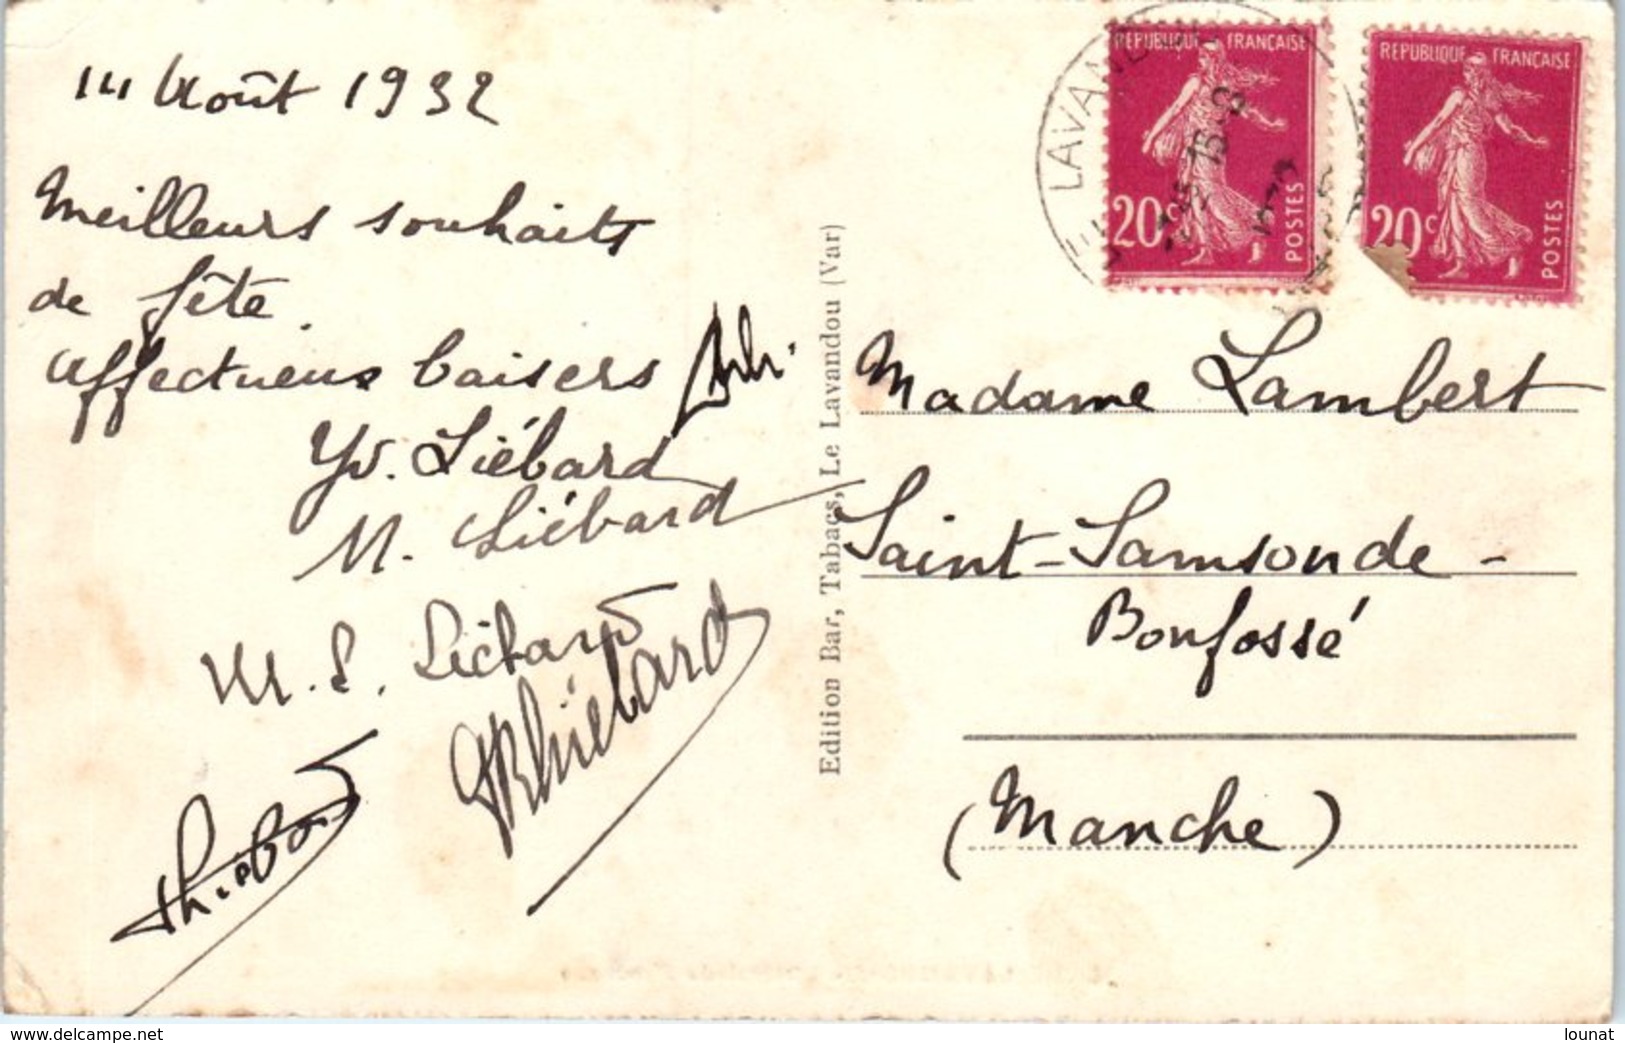 14 Août 1932
Meilleurs souhaits
de fête.
Affectueux baisers
Yv. Liébard
M. Liébard
M. L. Liébard
Liébard
Edition Bar, Tabacs, Le Lavandou (Var)
LE LAVANDOU
REPUBLIQUE FRANÇAISE
20c
POSTES
REPUBLIQUE FRANÇAISE
20c
POSTES
Madame Lambert
Saint-Samson de-
Bonfossé
(Manche)
www.delcampe.net
lounat